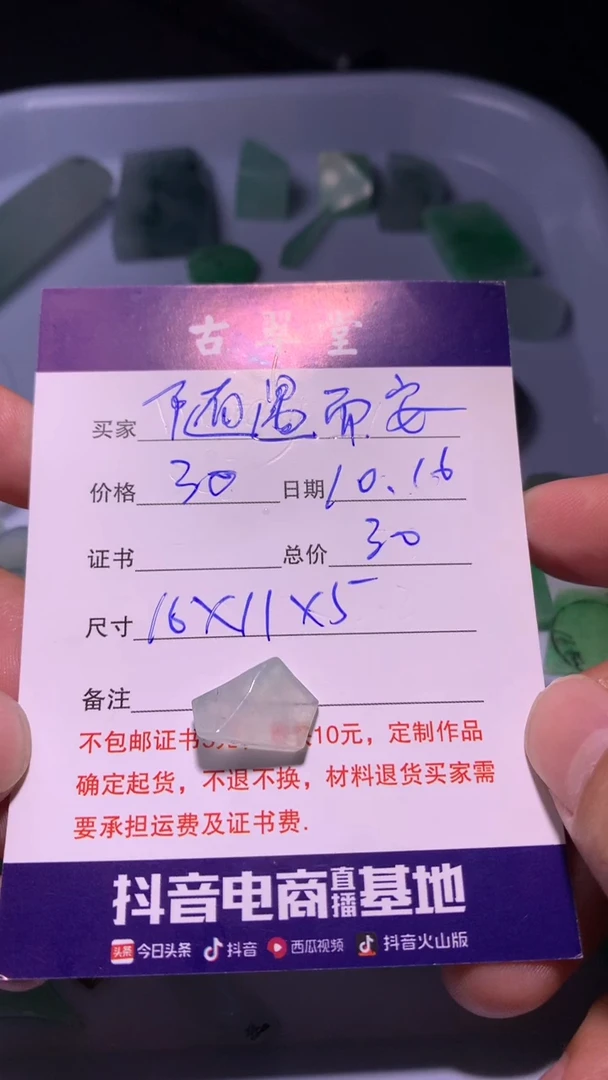 古翠堂
买家 随遇而安
价格 30 日期 10.16
证书 总价 30
尺寸 16X11X5
备注
不包邮证书5元, 10元，定制作品
确定起货，不退不换，材料退货买家需
要承担运费及证书费.
抖音电商直播基地
头条 今日头条 抖音 西瓜视频 抖音火山版